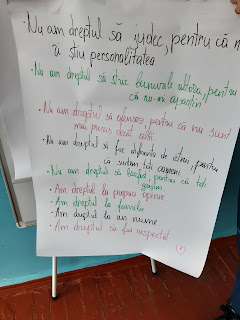 • Nu am dreptul să judec, pentru că n
îi știu personalitatea
• Nu am dreptul să stric bunurile altora, pentru
că nu-mi aparțin
• Nu am dreptul să ofensez, pentru că nu sunt
mai presus decât alții
• Nu am dreptul să fac diferențe de etnii, pentru
că suntem toți oameni
• Nu am dreptul să pentru că toți
greșim
• Am dreptul la propria opinie
• Am dreptul la familie
• Am dreptul la un nume
• Am dreptul să fiu respectat